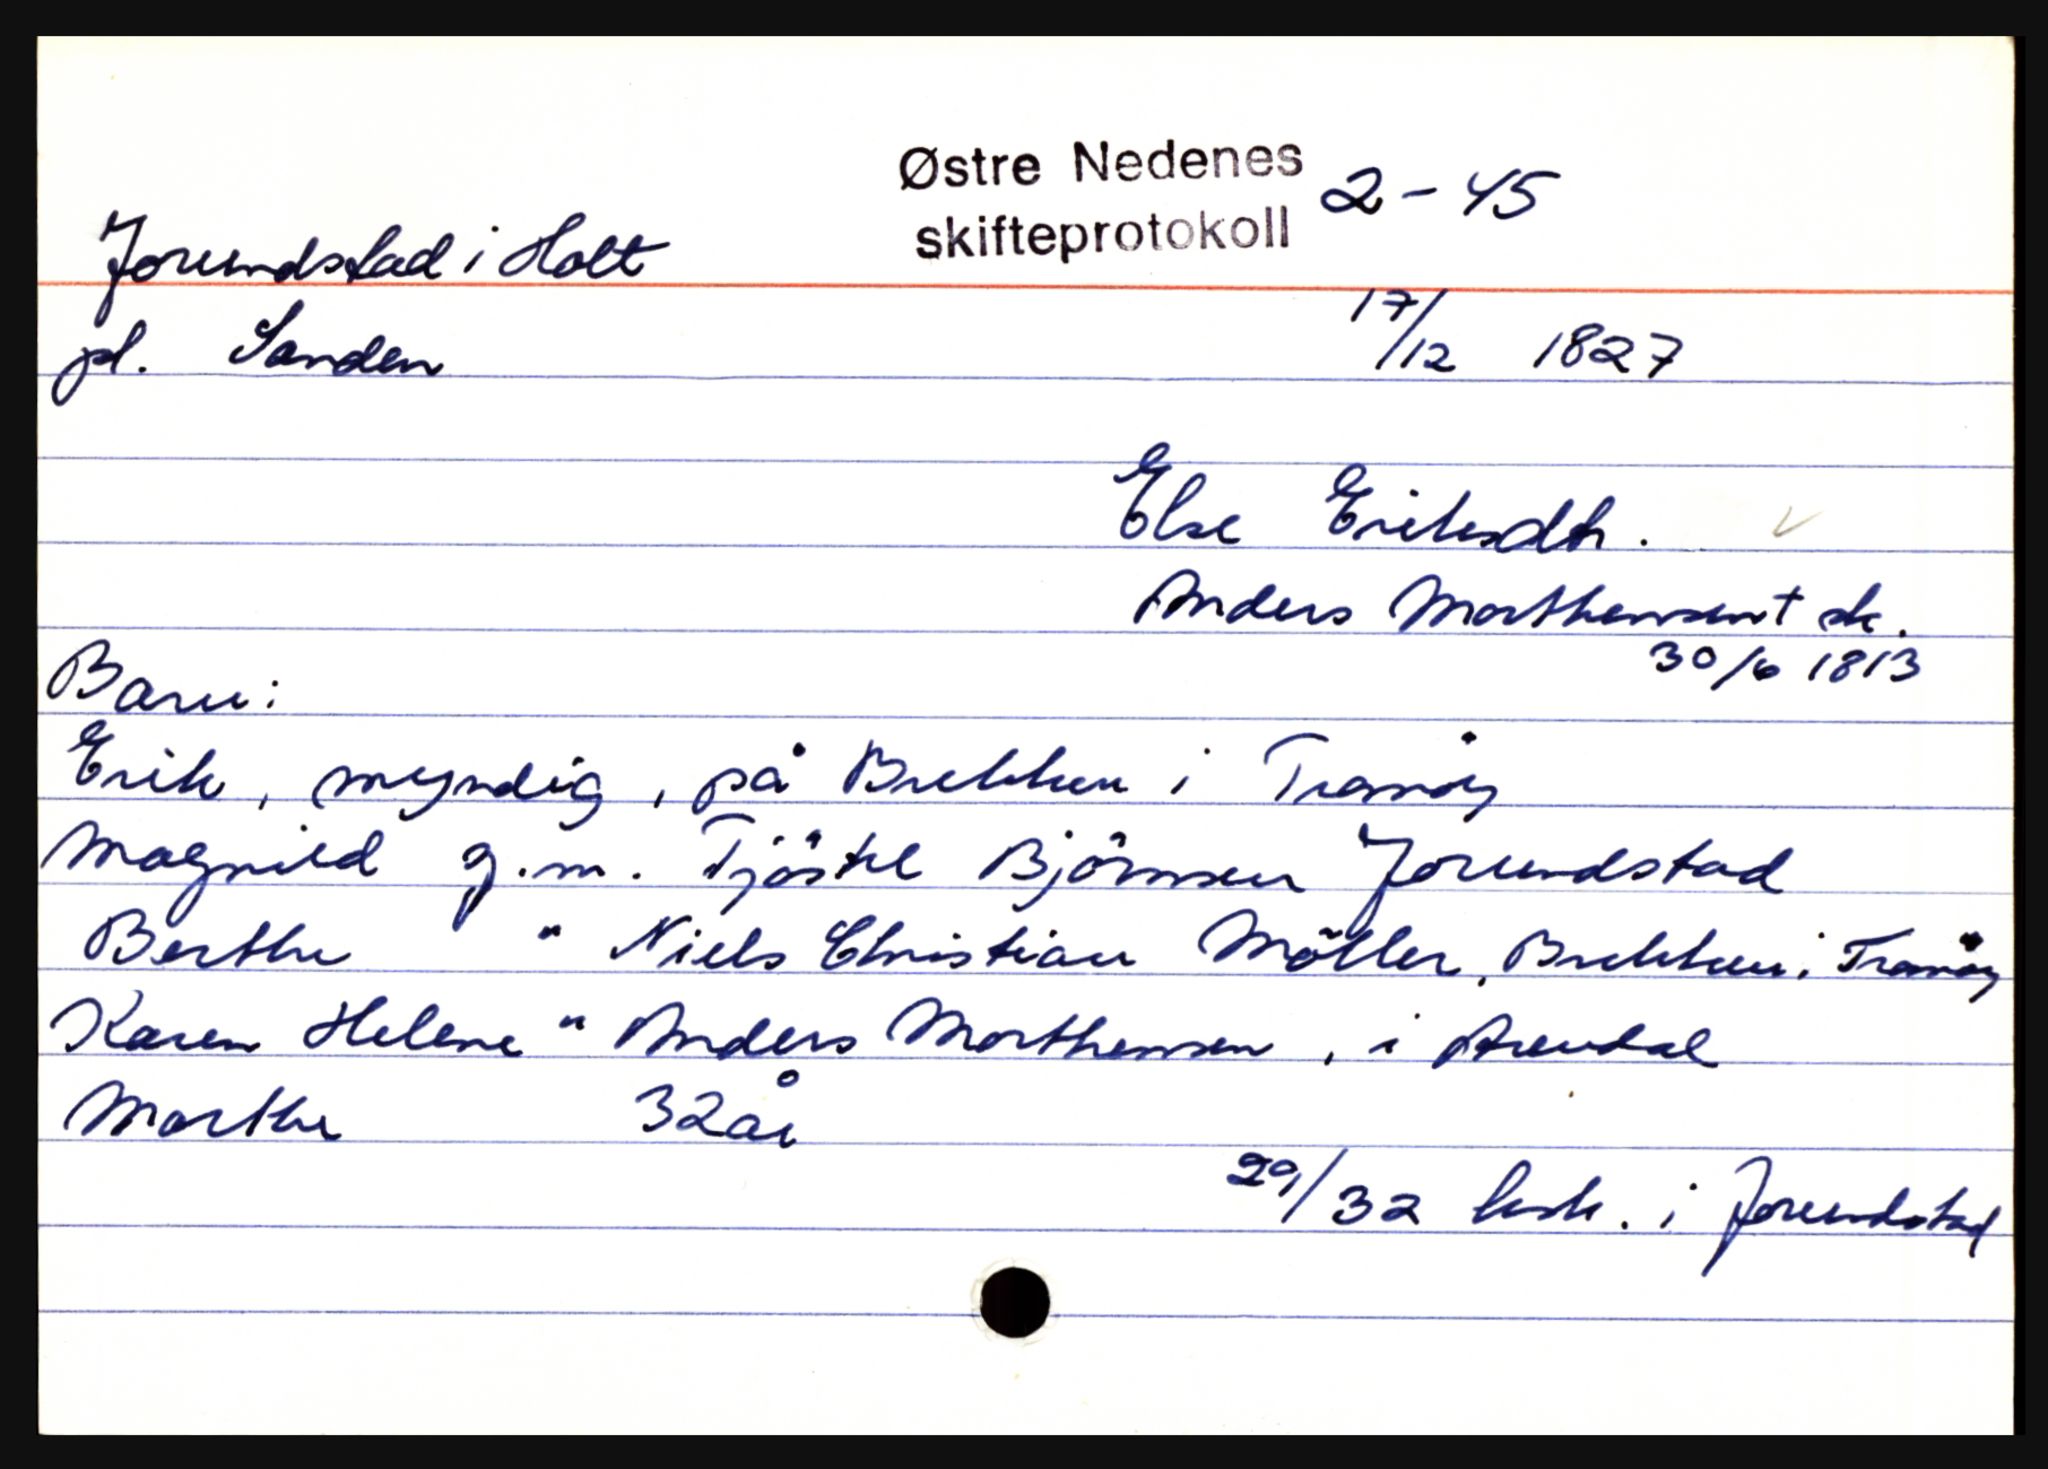 Østre Nedenes
skifteprotokoll 2-45
Jorundstad i Holt
pl. Sanden 17/12 1827
Else Eriksdtr.
Anders Morthensen † sk.
30/6 1813
Barn:
Erik, myndig, på Brekken i Tromöy
Magnild g.m. Tjöstel Björnsen Jorundstad
Berthe " Niels Christian Möller, Brekken i Tromöy
Karen Helene " Anders Morthensen, i Arendal
Marthe 32 år
29/32 husk. i Jorundstad